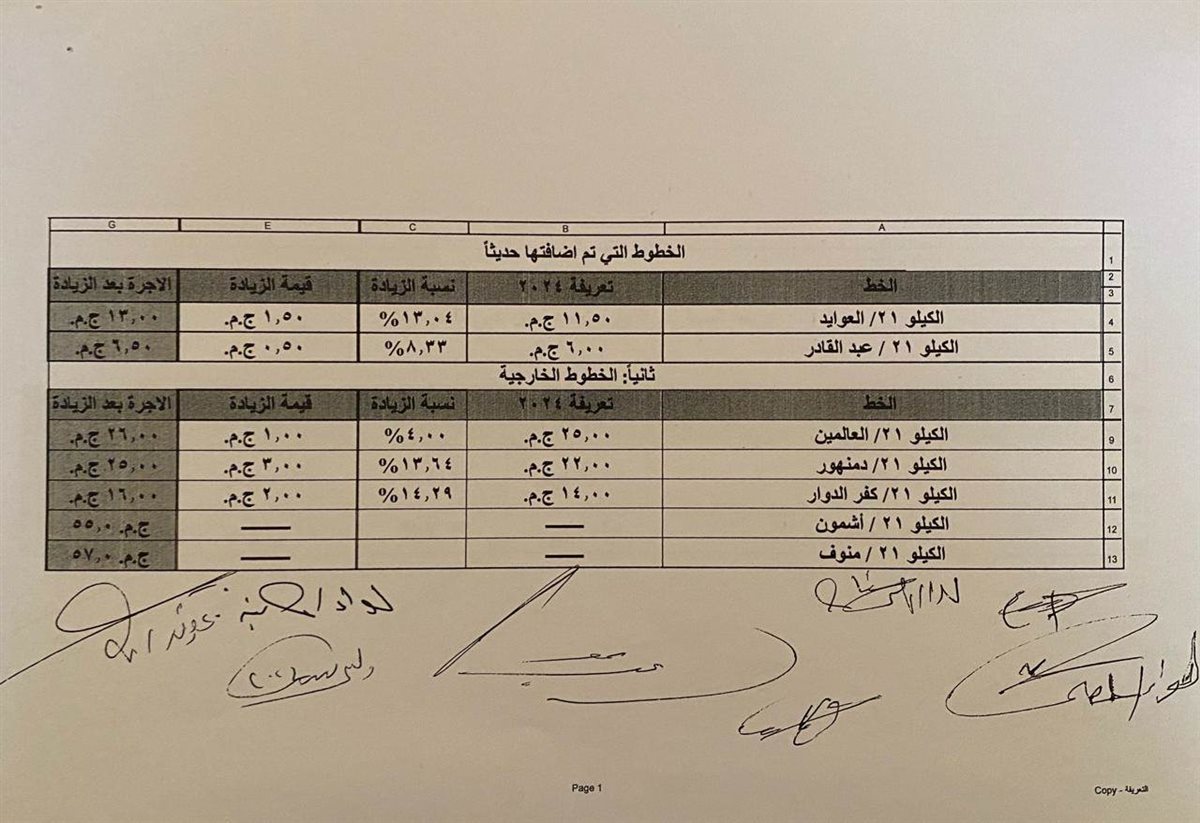 G E C B A
1 الخطوط التي تم اضافتها حديثاً
2
3 الخط تعريفة ٢٠٢٤ نسبة الزيادة قيمة الزيادة الاجرة بعد الزيادة
4 الكيلو ٢١/ العوايد ١١,٥٠ ج.م. ١٣,٠٤% ١,٥٠ ج.م. ١٣,٠٠ ج.م.
5 الكيلو ٢١ / عبد القادر ٦,٠٠ ج.م. ٨,٣٣% ٠,٥٠ ج.م. ٦,٥٠ ج.م.
6 ثانياً: الخطوط الخارجية
7 الخط تعريفة ٢٠٢٤ نسبة الزيادة قيمة الزيادة الاجرة بعد الزيادة
9 الكيلو ٢١/ العالمين ٢٥,٠٠ ج.م. ٤,٠٠% ١,٠٠ ج.م. ٢٦,٠٠ ج.م.
10 الكيلو ٢١/ دمنهور ٢٢,٠٠ ج.م. ١٣,٦٤% ٣,٠٠ ج.م. ٢٥,٠٠ ج.م.
11 الكيلو ٢١/ كفر الدوار ١٤,٠٠ ج.م. ١٤,٢٩% ٢,٠٠ ج.م. ١٦,٠٠ ج.م.
12 الكيلو ٢١ / أشمون — — ج.م. ٥٥,٠
13 الكيلو ٢١ / منوف — — ج.م. ٥٧,٠
Page 1
Copy - التعريفة